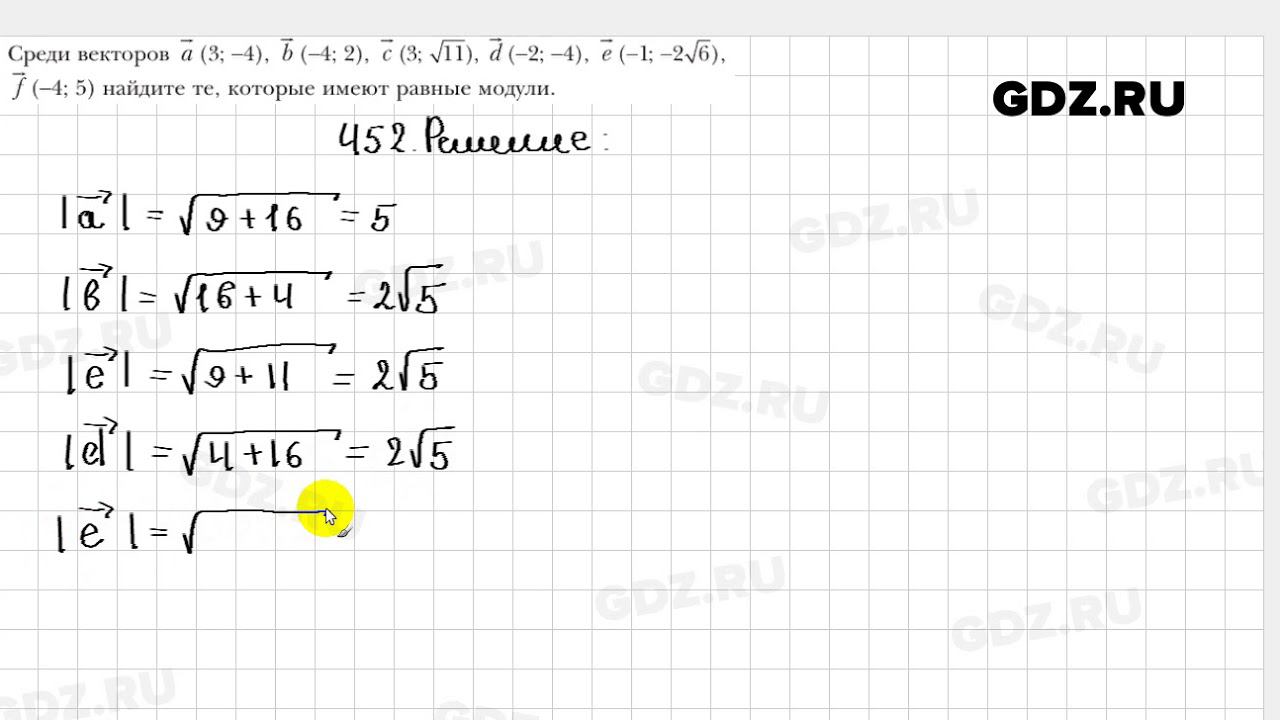 Среди векторов a⃗ (3; –4), b⃗ (–4; 2), c⃗ (3; √11), d⃗ (–2; –4), e⃗ (–1; –2√6),
f⃗ (–4; 5) найдите те, которые имеют равные модули.
GDZ.RU
452. Решение:
|a⃗| = √9+16 = 5
|в⃗| = √16+4 = 2√5
|e⃗| = √9+11 = 2√5
|d⃗| = √4+16 = 2√5
|e⃗| = √
GDZ.RU
GDZ.RU
GDZ.RU
GDZ.RU
GDZ.RU
GDZ.RU
GDZ.RU
GDZ.RU
GDZ.RU
GDZ.RU
GDZ.RU